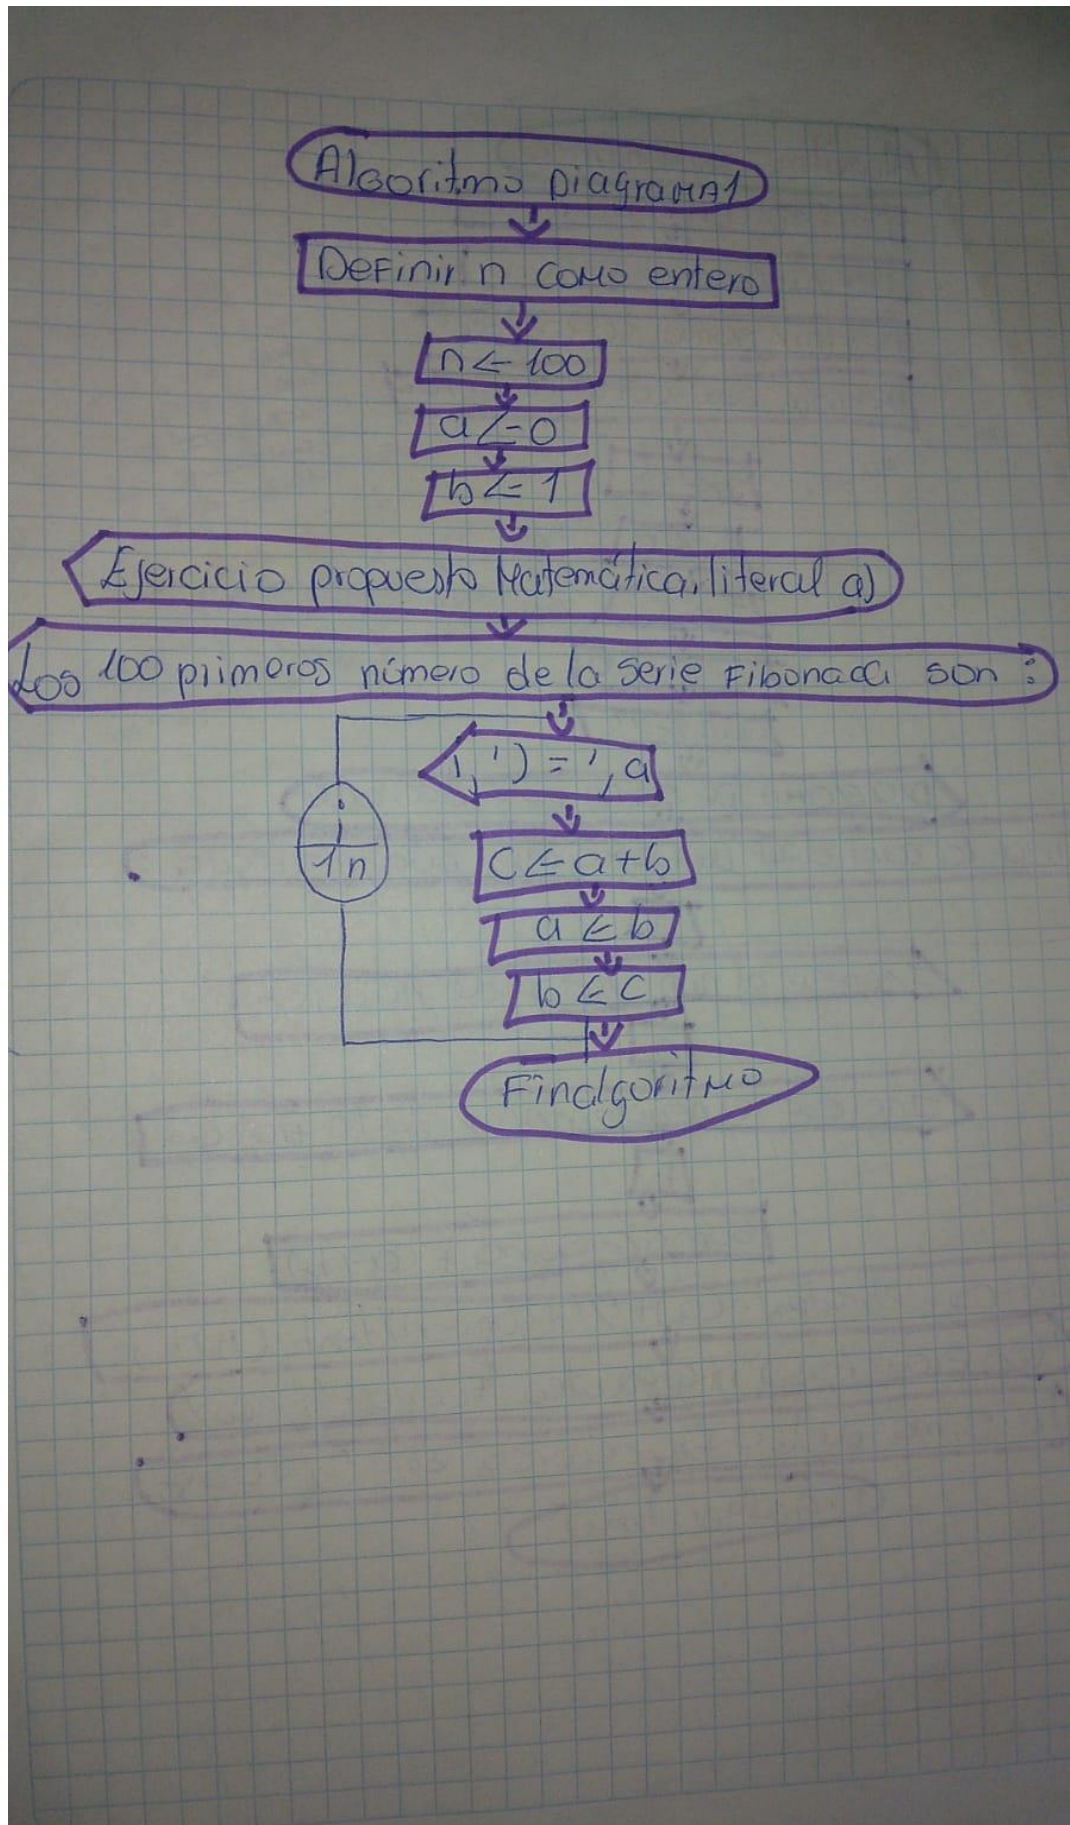 Algoritmo DiagramA1
Definir n como entero
n ← 100
a ← 0
b ← 1
Ejercicio propuesto Matemática, literal a)
Los 100 primeros número de la serie Fibonacci son :
i, ') = ', a
i
1 n
c ← a + b
a ← b
b ← c
Finalgoritmo